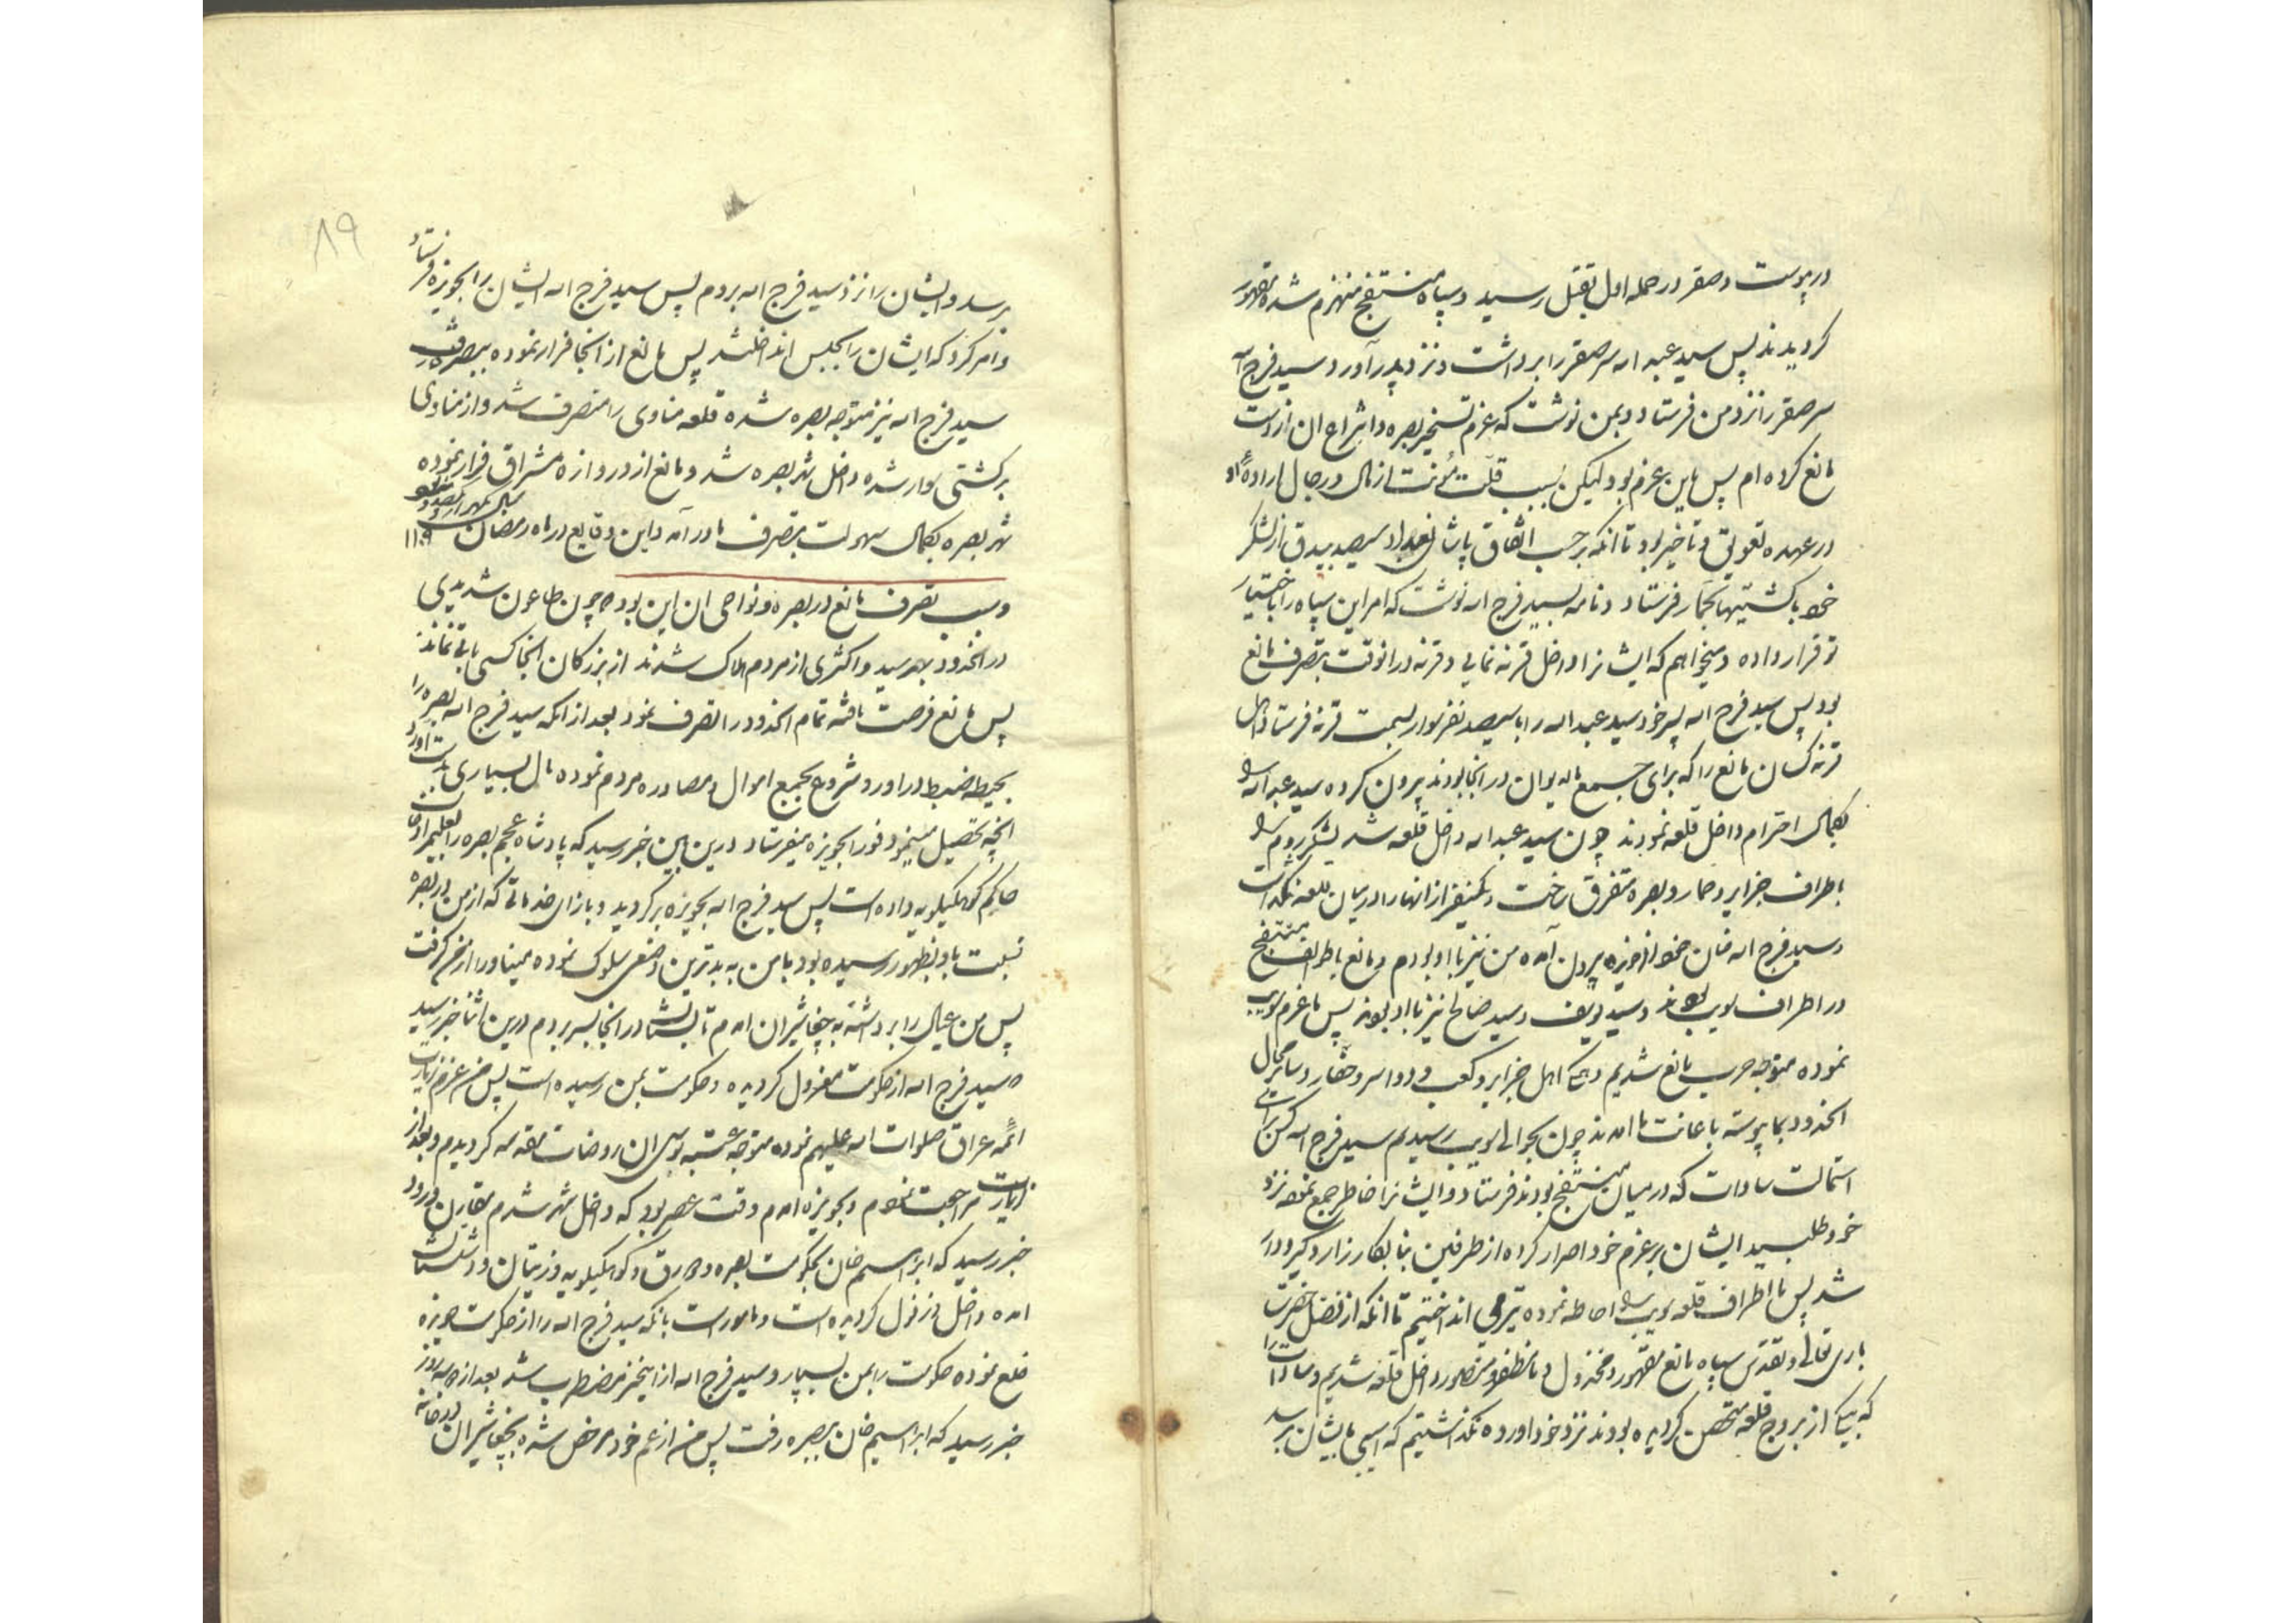 در پیوست و صقر در حمله اول بقتل رسید و سپاه منتفج منهزم شده مقهور
کردیدند پس سید عبد اله سر صقر را برداشت و نزد پدر آورد و سید فرج اله
سر صقر را نزد من فرستاد و بمن نوشت که عزم تسخیر بصره و اشراج ان از دست
مانع کرده ام پس باین عزم بود لیکن بسبب قلت مؤنت از مال و رجال اراده او
در عهده تعویق و تاخیر بود تا انکه بر حسب اتفاق پاشای بغداد سیصد بیدق از لشکر
خود با کشتیها بجمار فرستاد و نامه بسید فرج اله نوشت که امر این سپاه را باختیار
تو قرار داده و میخواهم که ایشانرا داخل قرنه نمایی و قرنه در انوقت بتصرف مانع
بود پس سید فرج اله پسر خود سید عبد اله را با سیصد نفر سوار بسمت قرنه فرستاد اهل
قرنه کسان مانع را که برای جمع مال دیوان در انجا بودند بیرون کرده سید عبد اله را
بکمال احترام داخل قلعه نمودند چون سید عبد اله داخل قلعه شد لشکر روم را
باطراف جزایر و حمار و بصره متفرق ساخت و یکنفر از انها را در میان قلعه نگذاشت
و سید فرج اله خان خود از حویزه بیرون آمده من نیز با او بودم و مانع با طوایف منتفج
در اطراف سویب بودند و سید و سید صالح نیز با او بودند پس ما عزم سویب
نموده متوجه حرب مانع شدیم و اهل جزایر و کعب و دواسر و حفار و سایر محال
انحدود بما پیوسته باعانت ما امدند چون بحوالی سویب رسیدیم سید فرج اله کس برای
استمالت سادات که در میان منتفج بودند فرستاد و ایشانرا خاطر جمع نموده نزد
خود طلبید ایشان بر عزم خود اصرار کرده از طرفین بنا بکارزار و گیر و دار
شد پس ما اطراف قلعه سویب را احاطه نموده تیر می انداختیم تا انکه از فضل حضرت
باری تعالی و تقدس سپاه مانع مقهور و مخذول و ما مظفر و منصور داخل قلعه شدیم و سادات را
که بیکی از بروج قلعه متحصن کردیده بودند نزد خود اورده نگذاشتیم که اسیبی بایشان برسد
۸۹
برسد و ایشان را نزد سید فرج اله بردم پس سید فرج اله ایشان را بحویزه فرستاد
و امر کرد که ایشان را بحبس انداختند پس مانع از انجا فرار نموده ببصره رفت
سید فرج اله نیز متوجه بصره شده قلعه مناوی را متصرف شد و از مناوی
بر کشتی سوار شده داخل شهر بصره شد و مانع از دروازه مشراق فرار نموده
شهر بصره بکمال سهولت بتصرف ما در آمد و این وقایع در ماه رمضان سال هزار و یکصد و نه بود ۱۱۰۹
و سبب تصرف مانع در بصره و نواحی ان این بود که چون طاعون شدیدی
در انحدود بهم رسید و اکثری از مردم هلاک شدند از بزرکان انجا کسی باقی نماند
پس مانع فرصت یافته تمام انحدود را تصرف نمود بعد از انکه سید فرج اله بصره را
بحیطه ضبط در اورد شروع بجمع اموال و مصادره مردم نموده مال بسیاری بدست اورد
انچه تحصیل مینمود فورا بحویزه میفرستاد درین بین خبر رسید که پادشاه عجم بصره را بعلیمردان
حاکم کوهکیلویه داده است پس سید فرج اله بحویزه بر کردید و بازای خدماتی که از من در بصره
نسبت باو بظهور رسیده بود با من به بدترین وضعی سلوک نموده میناو را از من گرفت
پس من عیال را برداشته به چغاشیران امدم تابستان را در انجا بسر بردم درین اثنا خبر رسید
که سید فرج اله از حکومت معزول کردیده و حکومت بمن رسیده است پس من عزم زیارت
ائمه عراق صلوات اله علیهم نموده متوجه عتبه بوسی ان روضات مقدسه کردیدم و بعد از
زیارت مراجعت نمودم و بحویزه امدم وقت عصر بود که داخل شهر شدم مقارن ورود
خبر رسید که ابراهیم خان بحکومت بصره و دورق و کوهکیلویه و زیتان و دشتستان
امده داخل دزفول کردیده است و مامور است بانکه سید فرج اله را از حکومت حویزه
خلع نموده حکومت را بمن بسپارد و سید فرج اله از اینخبر مضطرب شد بعد از دو سه روز
خبر رسید که ابراهیم خان ببصره رفت پس من از عم خود مرخص شده بچغاشیران